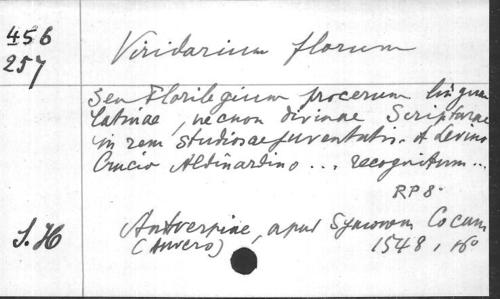 456
257
Viridarium florum
Seu Florilegium procerum linguae
latinae, necnon divinae Scripturae
in rem studiosae juventatis. A Levino
Crucio Aldinardino ... recognitum...
RP 8.
S. H
Antverpiae, apud Symonem Cocum
(Anvero)
1548, 16°